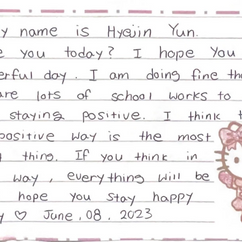 y name is Hyejin Yun.
e you today? I hope you
erful day. I am doing fine tho
are lots of school works to
staying positive. I think t
positive way is the most
g thing. If you think in
way, everything will be
hope you stay happy
y ♡ June, 08, 2023